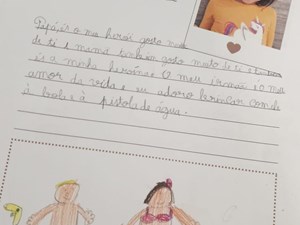 Papá és o meu herói gosto muito
de ti e mamã também gosto muito de ti e
és a minha heroína. O meu irmão é o meu
amor da vida e eu adoro brincar com ele
à bola e à pistola de água.